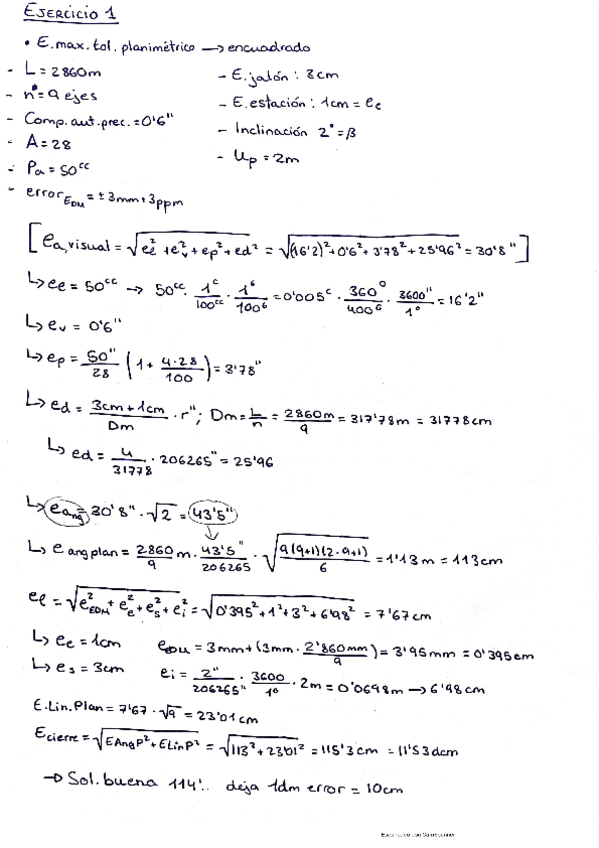 EJERCICIO 1
• E.max.tol. planimétrico → encuadrado
- L = 2860m
- nº = 9 ejes
- Comp. aut. prec. = 0'6"
- A = 28
- Pa = 50cc
- error EDM = ± 3mm + 3ppm
- E.jalón : 3cm
- E.estación : 1cm = ee
- Inclinación 2° = β
- Up = 2m
[ea,visual = √(ee² + ev² + ep² + ed²) = √((16'2)² + 0'6² + 3'78² + 25'96²) = 30'8"]
↳ ee = 50cc → 50cc · 1c/100cc · 1G/100G = 0'005c · 360°/400G · 3600"/1° = 16'2"
↳ ev = 0'6"
↳ ep = 50"/28 (1 + 4·28/100) = 3'78"
↳ ed = (3cm + 1cm)/Dm · r"; Dm = L/n = 2860m/9 = 317'78m = 31778cm
↳ ed = 4/31778 · 206265" = 25'96
↳ eang = 30'8" · √2 = 43'5"
↳ e ang plan = 2860/9 m · 43'5"/206265 · √(9(9+1)(2·9+1)/6) = 1'13m = 113cm
el = √(eEDM² + ee² + es² + ei²) = √(0'395² + 1² + 3² + 6'98²) = 7'67cm
↳ ee = 1cm eEDM = 3mm + (3mm · 2'860mm/9) = 3'95mm = 0'395cm
↳ es = 3cm ei = 2°/206265" · 3600/1° · 2m = 0'0698m → 6'98cm
E.Lin.Plan = 7'67 · √9 = 23'01cm
Ecierre = √(EAngP² + ELinP²) = √(113² + 23'01²) = 115'3cm = 11'53dcm
→ Sol. buena 114'.. deja 1dm error = 10cm